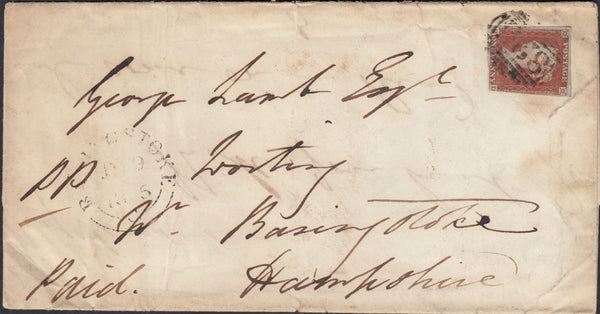 POSTAGE
George Lamb Esqr
BASINGSTOKE
pp Worting
Nr Basingstoke
Paid. Hampshire